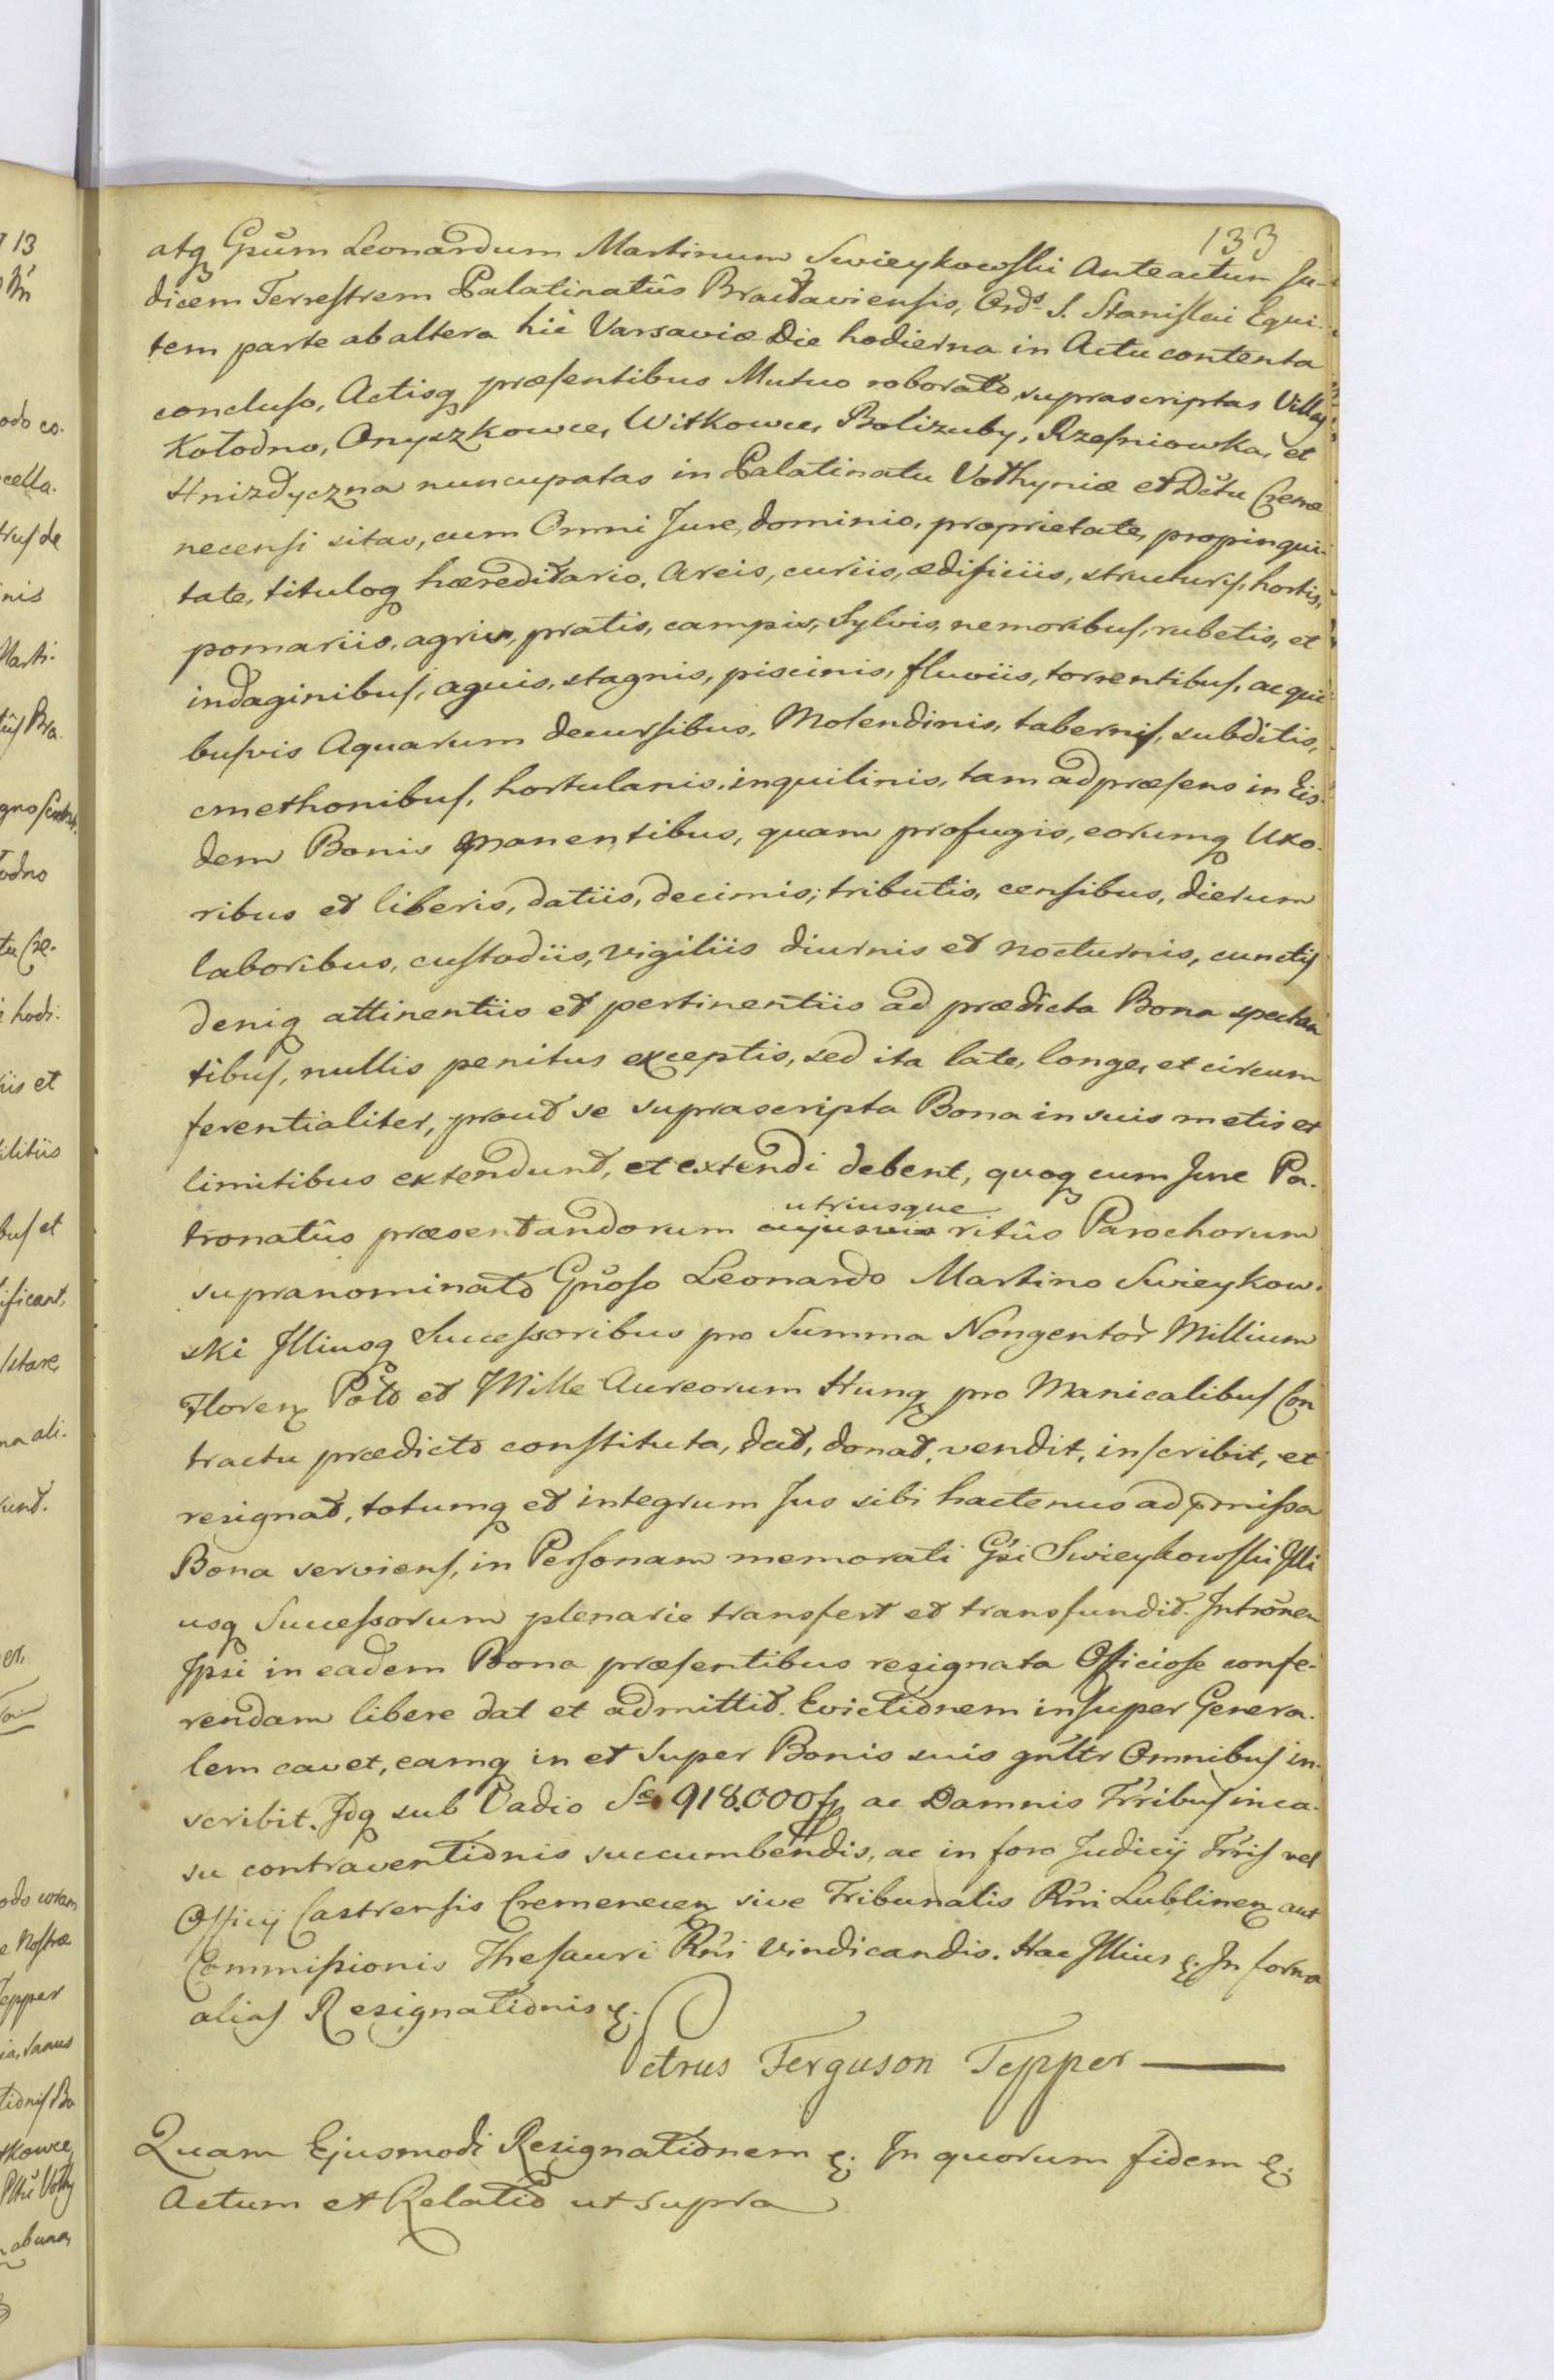 133
atq Gsũm Leonardum Martinum Swieykowski Anteactum Ju-
dicem Terrestrem Palatinatûs Bracłaviensis, Ord̃s S. Stanislai Equi-
tem parte ab altera hic Varsaviæ Die hodierna in Actu contenta
concluso, Actisq præsentibus Mutuo roborato, suprascriptas Villas
Kołodno, Onyszkowce, Witkowce, Bolizuby, Rzesniowka, et
Hnizdyczna nuncupatas in Palatinatu Volhyniæ et Dĉtu Creme
necensi sitas, cum Omni Jure, dominio, proprietate, propinqui-
tate, tituloq hæreditario. Areis, curiis, ædificiis, structuris, hortis,
pomariis, agris, pratis, campis, Sylvis, nemoribus, rubetis, et
indaginibus, aquis, stagnis, piscinis, fluviis, torrentibus, ac qui-
busvis Aquarum decursibus, Molendinis, tabernis, subditis,
cmethonibus, hortulanis, inquilinis, tam ad præsens in Eis-
dem Bonis manentibus, quam profugis, eorumq Uxo-
ribus et liberis, datiis, decimis, tributis, censibus, dierum
laboribus, custodiis, vigiliis diurnis et nocturnis, cunctis
deniq attinentiis et pertinentiis ad prædicta Bona spectan
tibus, nullis penitus exceptis, sed ita late, longe, et circum
ferentialiter, prout se suprascripta Bona in suis metis et
limitibus extendunt, et extendi debent, quoq cum Jure Pa-
utriusque
tronatûs præsentandorum cujusvis ritûs Parochorum
supranominato Gñoso Leonardo Martino Swieykow-
ski Illiusq Successoribus pro Summa Nongentor̃ Millium
Floren Poło et Mille Aureorum Hung pro Manicalibus Con
tractu prædicto constituta, dat, donat, vendit, inscribit, et
resignat, totumq et integrum Jus sibi hactenus ad pr̃missa
Bona serviens, in Personam memorati Gsi Swieykowski Illi
usq Successorum plenarie transfert et transfundit. Intrõnem
Ipsi in eadem Bona præsentibus resignata Officiose confe-
rendam libere dat et admittit. Evictionem insuper Genera-
lem cavet, eamq in et super Bonis suis gñltr Omnibus in-
scribit. Idq sub Vadio Sæ 918.000 fp ac Damnis Tr̃ribus in ca-
su contraventionis succumbendis, ac in foro Judicij Tr̃ris vel
Officij Castrensis Cremenecen sive Tribunalis Rñi Lublinen aut
Commissionis Thesauri Rñi vindicandis. Hac Illius &. In forma
alias Resignationis &.
Petrus Ferguson Tepper
Quam Ejusmodi Resignationem &. In quorum fidem &.
Actum et Relatio ut supra